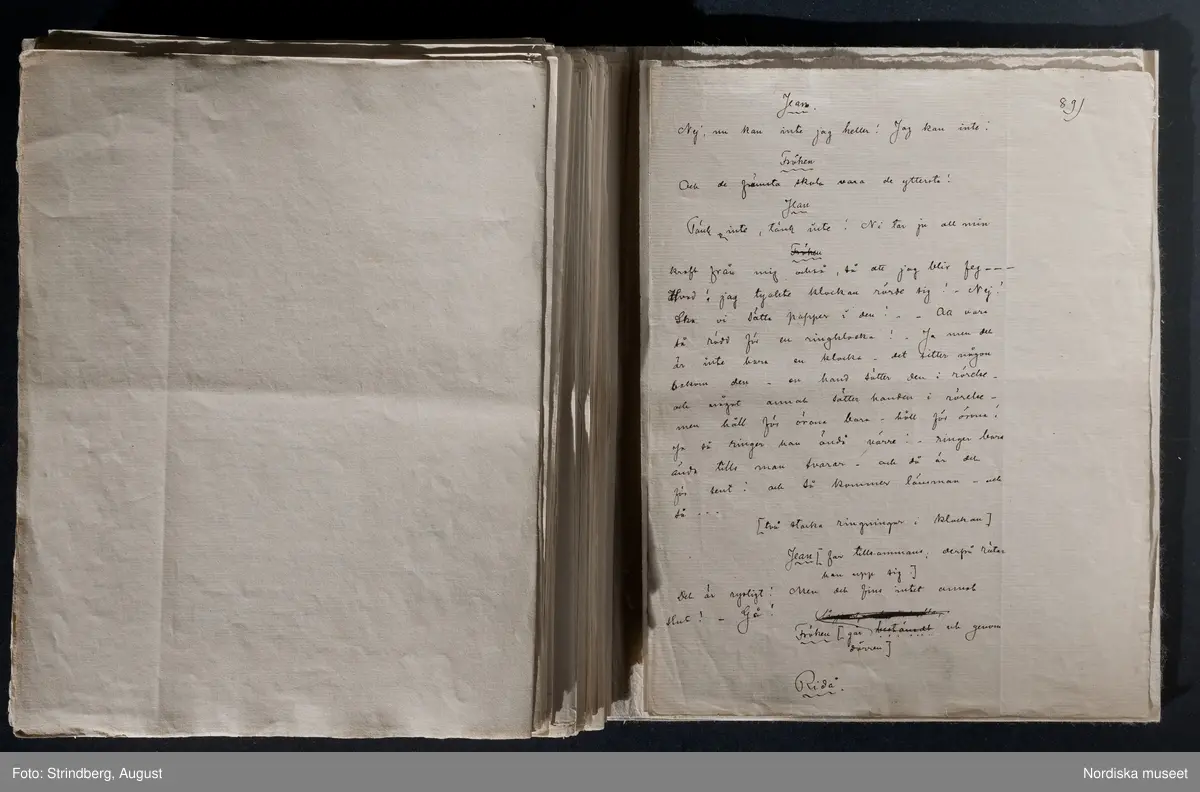 89)
Jean.
Nej, nu kan inte jag heller! Jag kan inte!
Fröken
Och de främsta skola vara de ytterste!
Jean
Tänk inte, tänk inte! Ni tar ju all min
Fröken
kraft från mig också, så att jag blir feg ---
Hvad! jag tyckte klockan rörde sig! - Nej!
Ska vi sätta papper i den! - - Att vara
så rädd för en ringklocka! - Ja men det
är inte bara en klocka - det sitter någon
bakom den - en hand sätter den i rörelse -
och något annat sätter handen i rörelse -
men håll för örona bara - håll för örona!
Ja så ringer han ändå värre! - ringer bara
ända tills man svarar - och då är det
för sent! och så kommer länsman - och
så ...
[två starka ringningar i klockan]
Jean [far tillsammans; derpå rätar
han upp sig]
Det är rysligt! Men det fins intet annat
slut! - Gå!
Fröken [går bestämdt ut genom
dörren]
Ridå.
Foto: Strindberg, August
Nordiska museet